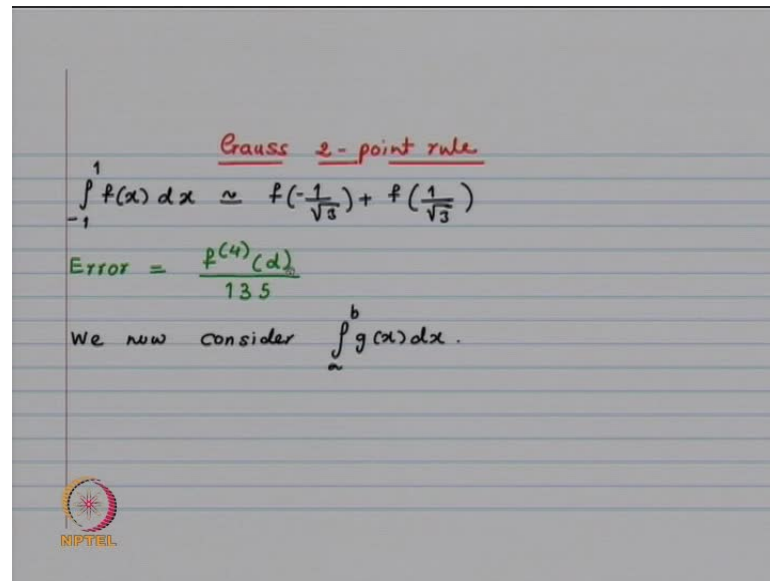 Gauss 2-point rule
∫_{-1}^{1} f(x) dx ≃ f(-1/√3) + f(1/√3)
Error = f^{(4)}(d) / 135
We now consider ∫_a^b g(x) dx.
NPTEL